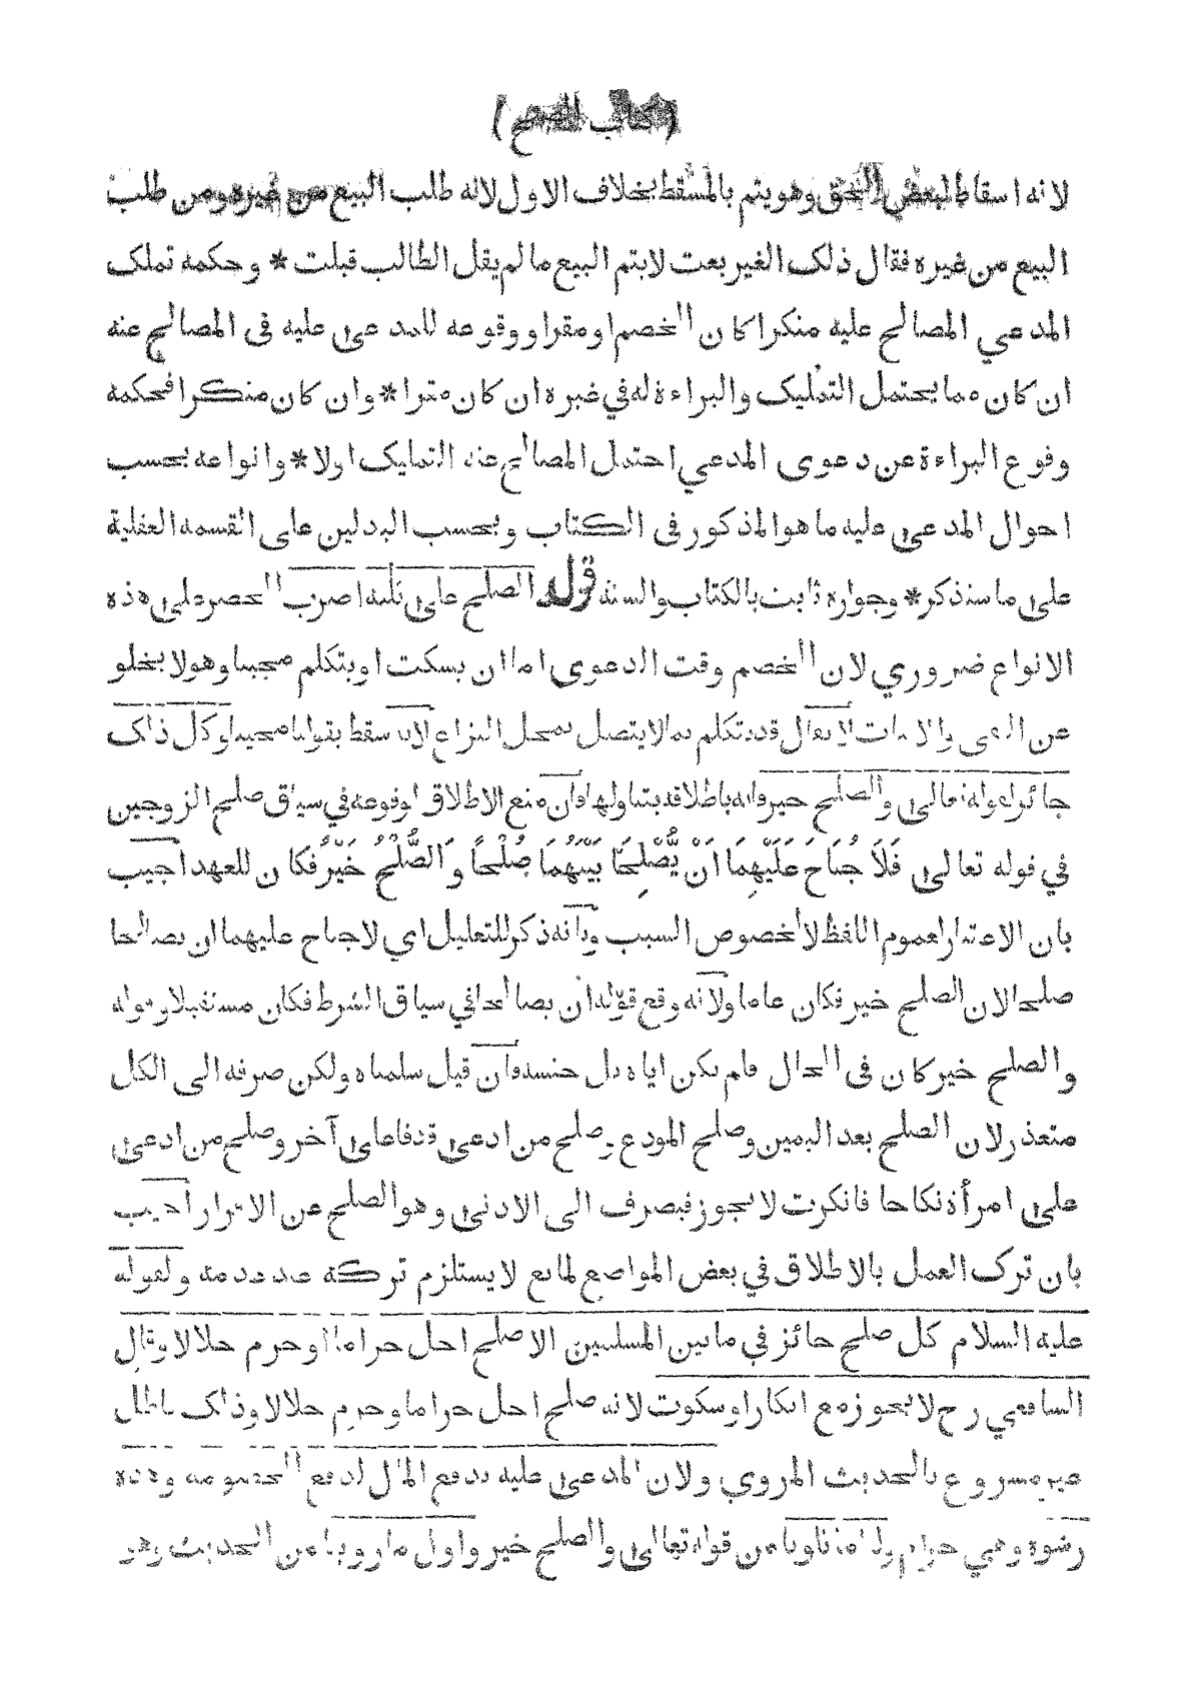 (كتاب الصلح)
لانه اسقاط لبعض الحق وهو يتم بالمسقط بخلاف الاول لانه طلب البيع من غيره ومن طلب
البيع من غيره فقال ذلك الغير بعت لا يتم البيع ما لم يقل الطالب قبلت * وحكمه تملك
المدعي المصالح عليه منكرا كان الخصم او مقرا ووقوعه للمدعى عليه فى المصالح عنه
ان كان مما يحتمل التمليك والبراءة له في غيره ان كان مقرا * وان كان منكرا فحكمه
وقوع البراءة عن دعوى المدعي احتمل المصالح عنه التمليك اولا * وانواعه بحسب
احوال المدعى عليه ما هو المذكور فى الكتاب وبحسب البدلين على القسمه العقلية
على ما سنذكر * وجوازه ثابت بالكتاب والسنه قوله الصلح على ثلثه اضرب الحصر على هذه
الانواع ضروري لان الخصم وقت الدعوى اما ان يسكت او يتكلم مجيبا وهو لا يخلو
عن النفى والاثبات لا يقال قد يتكلم بما لا يتصل بمحل النزاع لانه سقط بقولنا مجيبا وكل ذلك
جائز لقوله تعالى والصلح خير فانه باطلاقه يتناولها فان منع الاطلاق لوقوعه في سياق صلح الزوجين
في قوله تعالى فَلَا جُنَاحَ عَلَيْهِمَا اَنْ يُّصْلِحَا بَيْنَهُمَا صُلْحاً وَالصُّلْحُ خَيْرٌ فكان للعهد اجيب
بان الاعتبار لعموم اللفظ لا لخصوص السبب وبانه ذكر للتعليل اي لا جناح عليهما ان يصالحا
صلحا لان الصلح خير فكان عاما ولانه وقع قوله ان يصالحا في سياق الشرط فكان مستقبلا وقوله
والصلح خير كان فى الحال فلم يكن اياه بل جنسه وان قيل سلمناه ولكن صرفه الى الكل
متعذر لان الصلح بعد اليمين وصلح المودع وصلح من ادعى قذفا على آخر وصلح من ادعى
على امرأة نكاحا فانكرت لا يجوز فيصرف الى الادنى وهو الصلح عن الاقرار اجيب
بان ترك العمل بالاطلاق في بعض المواضع لمانع لا يستلزم تركه عند عدمه ولقوله
عليه السلام كل صلح جائز في ما بين المسلمين الا صلح احل حراما او حرم حلالا وقال
الشافعي رح لا يجوز مع انكار او سكوت لانه صلح احل حراما وحرم حلالا وذلك باطل
غير مشروع بالحديث المروي ولان المدعى عليه يدفع المال لدفع الخصومه وهذه
رشوة وهي حرام ولنا ما تلونا من قوله تعالى والصلح خير واول ما روينا من الحديث وهو